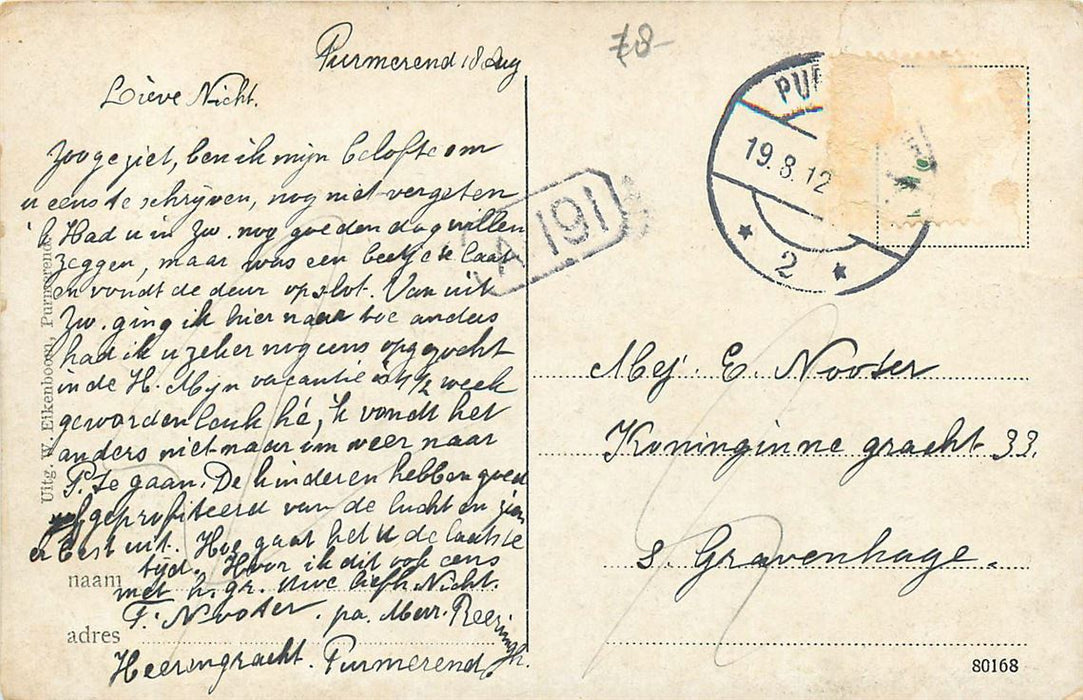 78-
Purmerend 18 Aug
Lieve Nicht.
Zooge ziet, ben ik mijn belofte om
u eens te schrijven, nog niet vergeten
'k Had u in Zw. nog goeden dag willen
zeggen, maar was een beetje te laat
en vondt de deur op slot. Van uit
Zw. ging ik hier naar toe anders
had ik u zeker nog eens opgezocht
in de H. Mijn vacantie is 1 1/2 week
geworden leuk hé, 'k vondt het
anders niet naar om weer naar
P. te gaan. De kinderen hebben goed
geprofiteerd van de lucht en zien
er best uit. Hoe gaat het u de laatste
tijd. Hoor ik dit ook eens
met h. gr. Uwe liefh. Nicht.
T. Nooter. pa. Mevr. Reeringh.
Heerengracht. Purmerend
naam
adres
Uitg. W. Eikenboom, Purmerend.
LA 191
PUR
19.8.12
2
Mej. E. Nooter
Koninginne gracht 33.
s. Gravenhage.
80168